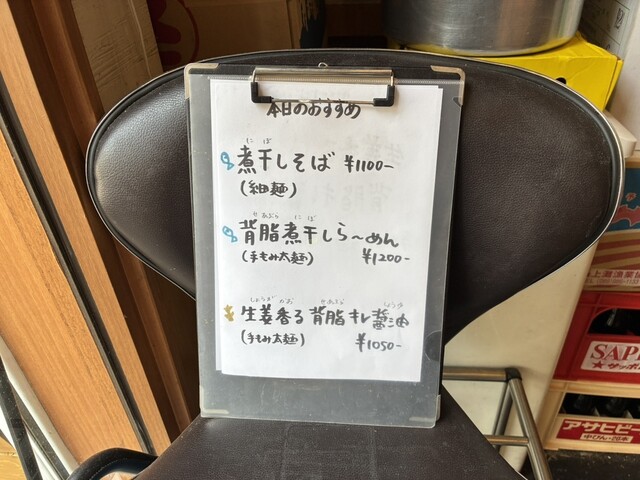 本日のおすすめ
にぼ
煮干しそば ¥1100-
(細麺)
せあぶら にぼ
背脂煮干しら～めん
(手もみ太麺) ¥1200-
しょうが かお せあぶら しょうゆ
生姜香る背脂キレ醤油
(手もみ太麺) ¥1050-
上灘漁業協
SAPP
★サッポ
アサヒビー
中びん・20本